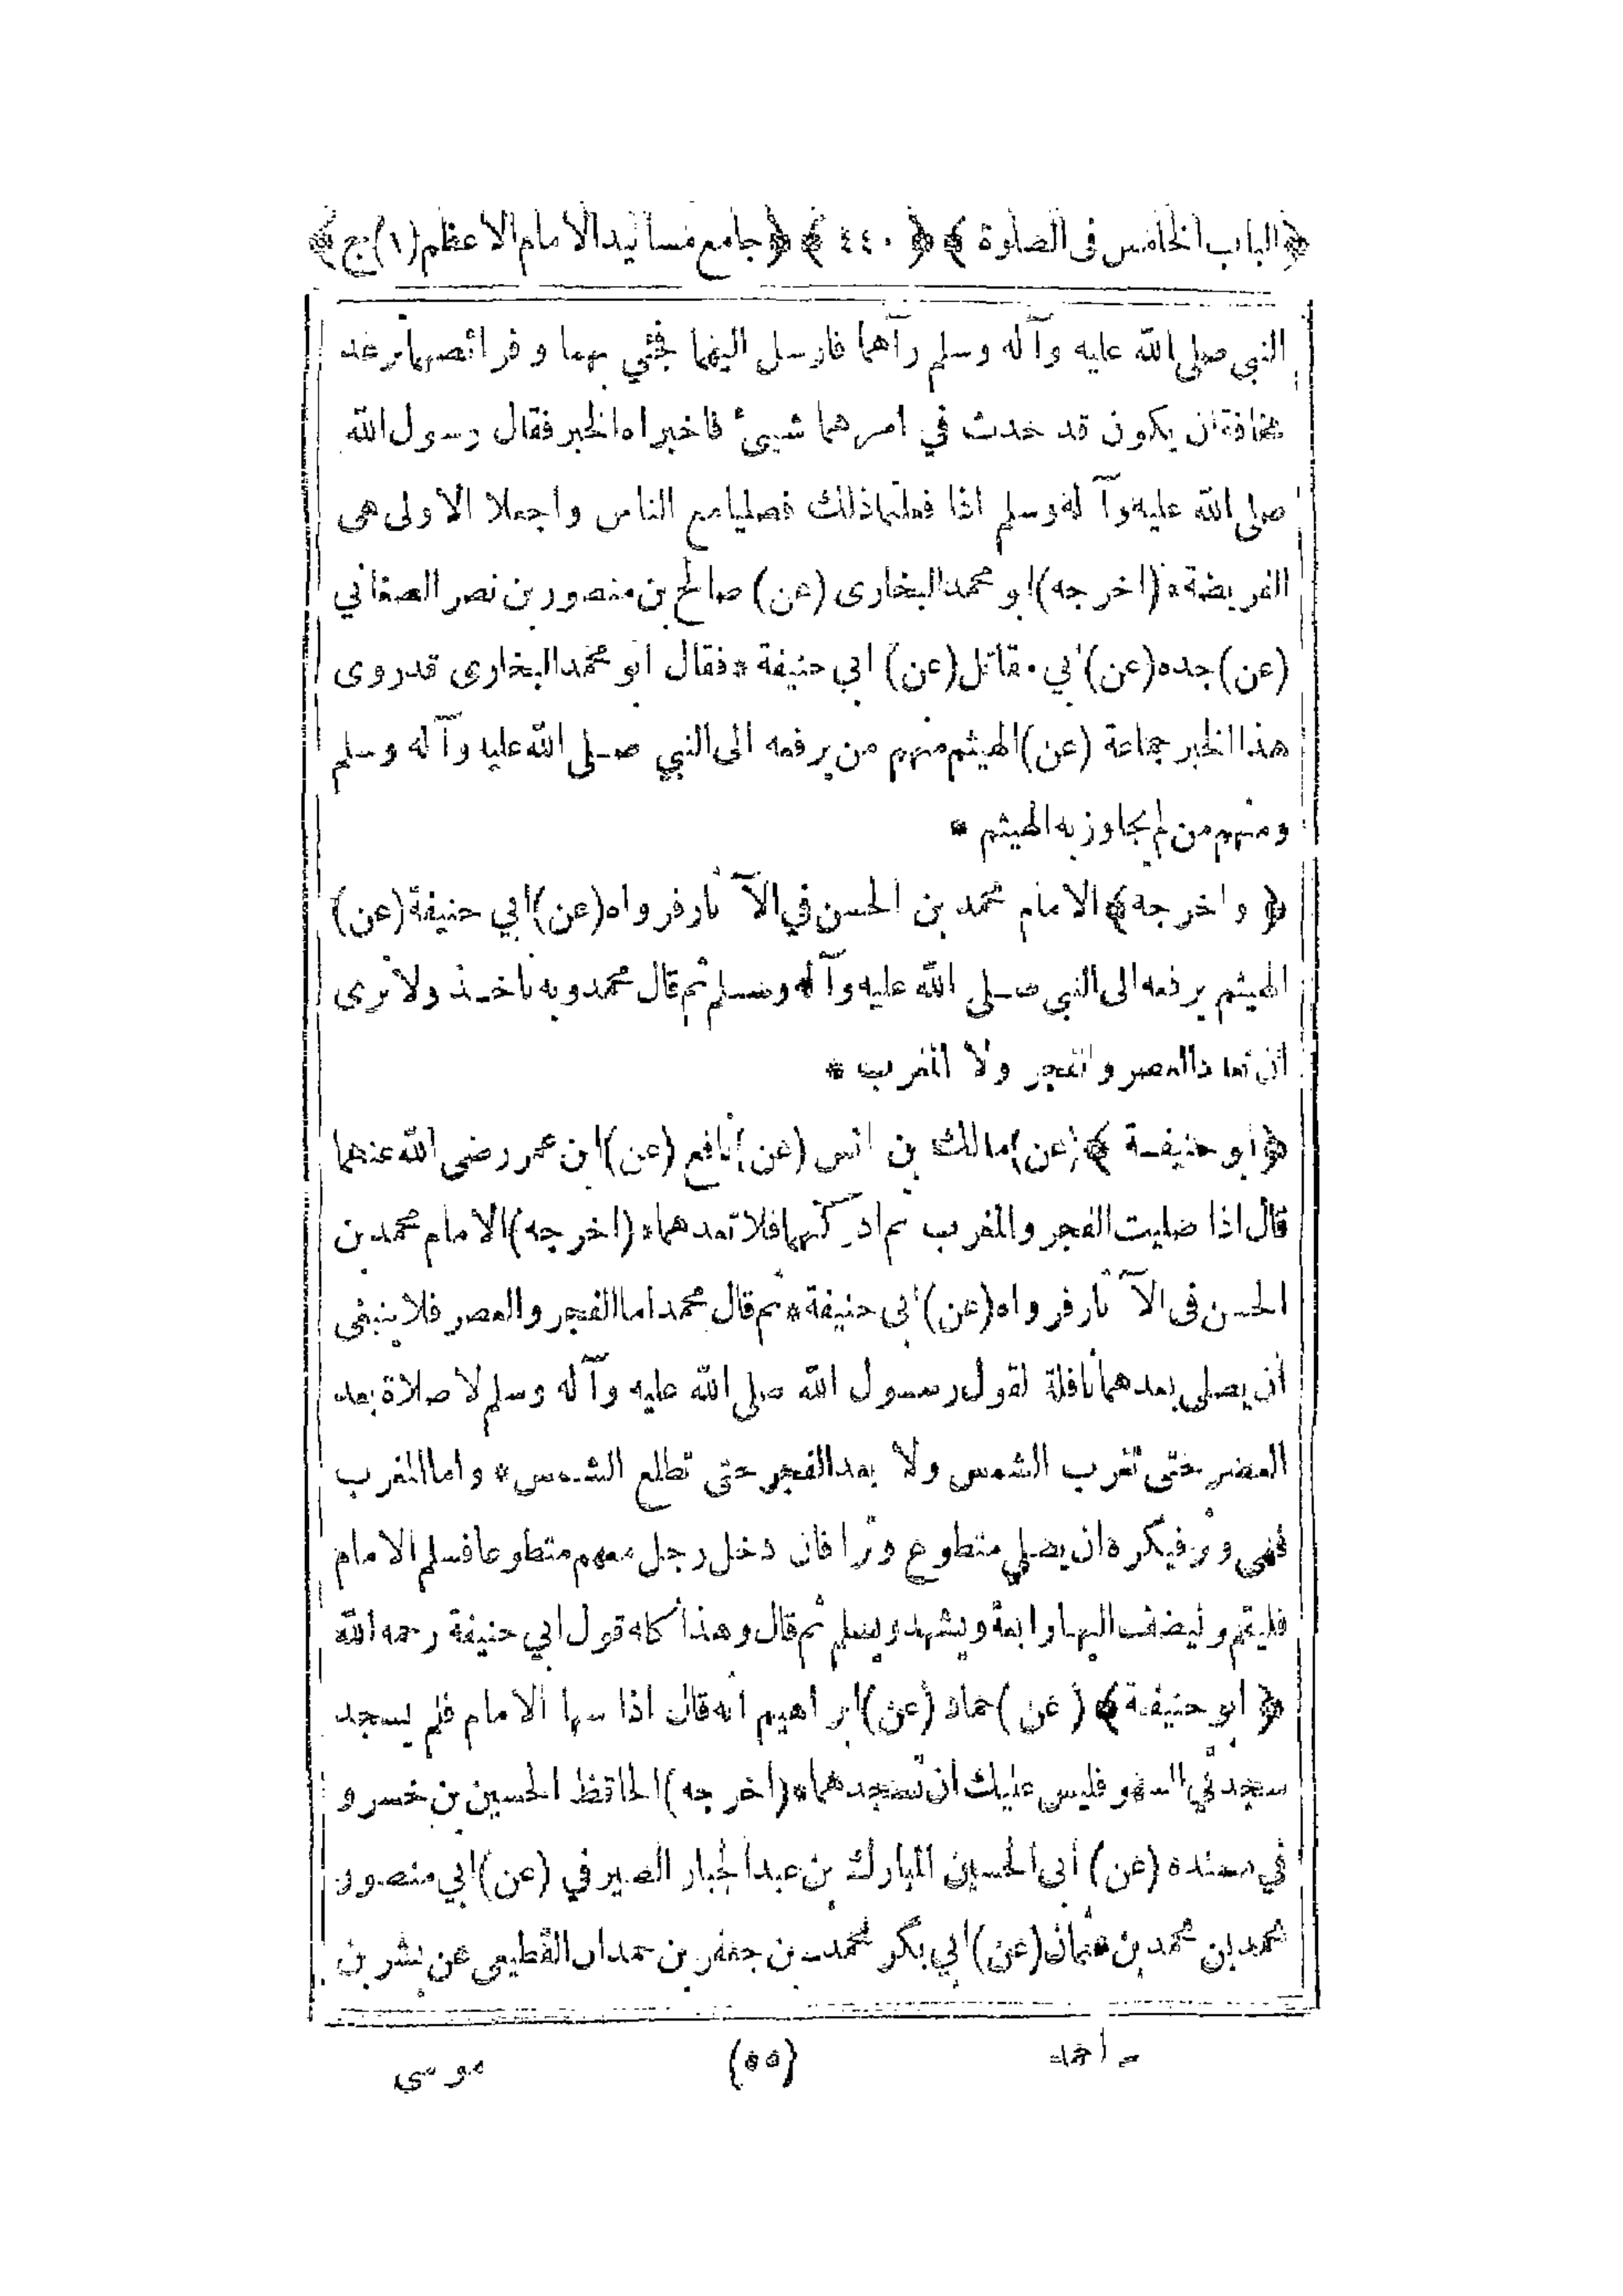 ﴿الباب الخامس فى الصلوة﴾ ﴿٤٤٠﴾ ﴿جامع مسانيد الامام الاعظم (١) ج﴾
النبي صلى الله عليه وآله وسلم رآهما فارسل اليهما فجئي بهما و فرائصهما ترعد
مخافة ان يكون قد حدث في امرهما شيئ فاخبراه الخبر فقال رسول الله
صلى الله عليه وآله وسلم اذا فعلتما ذلك فصليا مع الناس واجعلا الاولى هى
الفريضة * (اخرجه) ابو محمد البخارى (عن) صالح بن منصور بن نصر الصغاني
(عن) جده (عن) ابي مقاتل (عن) ابي حنيفة * فقال ابو محمد البخارى قدروى
هذا الخبر جماعة (عن) الهيثم منهم من يرفعه الى النبي صلى الله عليه وآله وسلم
ومنهم من لم يجاوز به الهيثم *
﴿واخرجه﴾ الامام محمد بن الحسن في الآثار فرواه (عن) ابي حنيفة (عن)
الهيثم يرفعه الى النبي صلى الله عليه وآله وسلم ثم قال محمد وبه ناخذ ولا نرى
ان تعاد العصر والفجر ولا المغرب *
﴿ابو حنيفة﴾ (عن) مالك بن انس (عن) نافع (عن) ابن عمر رضى الله عنهما
قال اذا صليت الفجر والمغرب ثم ادركتهما فلا تعدهما * (اخرجه) الامام محمد بن
الحسن فى الآثار فرواه (عن) ابى حنيفة * ثم قال محمد اما الفجر والعصر فلا ينبغى
ان يصلى بعدهما نافلة لقول رسول الله صلى الله عليه وآله وسلم لا صلاة بعد
العصر حتى تغرب الشمس ولا بعد الفجر حتى تطلع الشمس * واما المغرب
فهى وتر فيكره ان يصلي متطوع وترا فان دخل رجل معهم متطوعا فسلم الامام
فليقم وليضف اليها رابعة ويشهد ويسلم ثم قال وهذا كله قول ابي حنيفة رحمه الله
﴿ابو حنيفة﴾ (عن) حماد (عن) ابراهيم انه قال اذا سها الامام فلم يسجد
سجدتي السهو فليس عليك ان تسجدهما * (اخرجه) الحافظ الحسين بن خسرو
في مسنده (عن) ابى الحسين المبارك بن عبد الجبار الصيرفي (عن) ابي منصور
محمد بن محمد بن عثمان (عن) ابي بكر محمد بن جعفر بن حمدان القطيعى عن بشر بن
احمد (٥٥) موسى